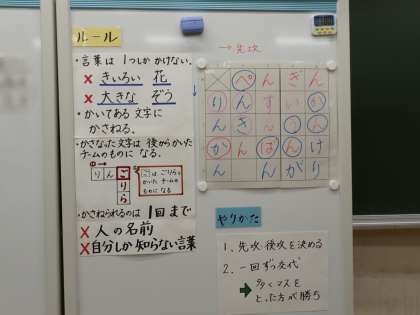 ルール
・言葉は1つしかかけない。
×きいろい 花
×大きな ぞう
・かいてある文字に
かさねる。
・かさなった文字は後からかいた
チームのものになる。
りんご
りら
・かさねられるのは1回まで
×人の名前
×自分しか知らない言葉
→先攻
ぺんぎん
りんすいか
んきん
かんぱんけ
んがり
やりかた
1. 先攻・後攻を決める
2. 一回ずつ交代
➡多くマスを
とった方が勝ち